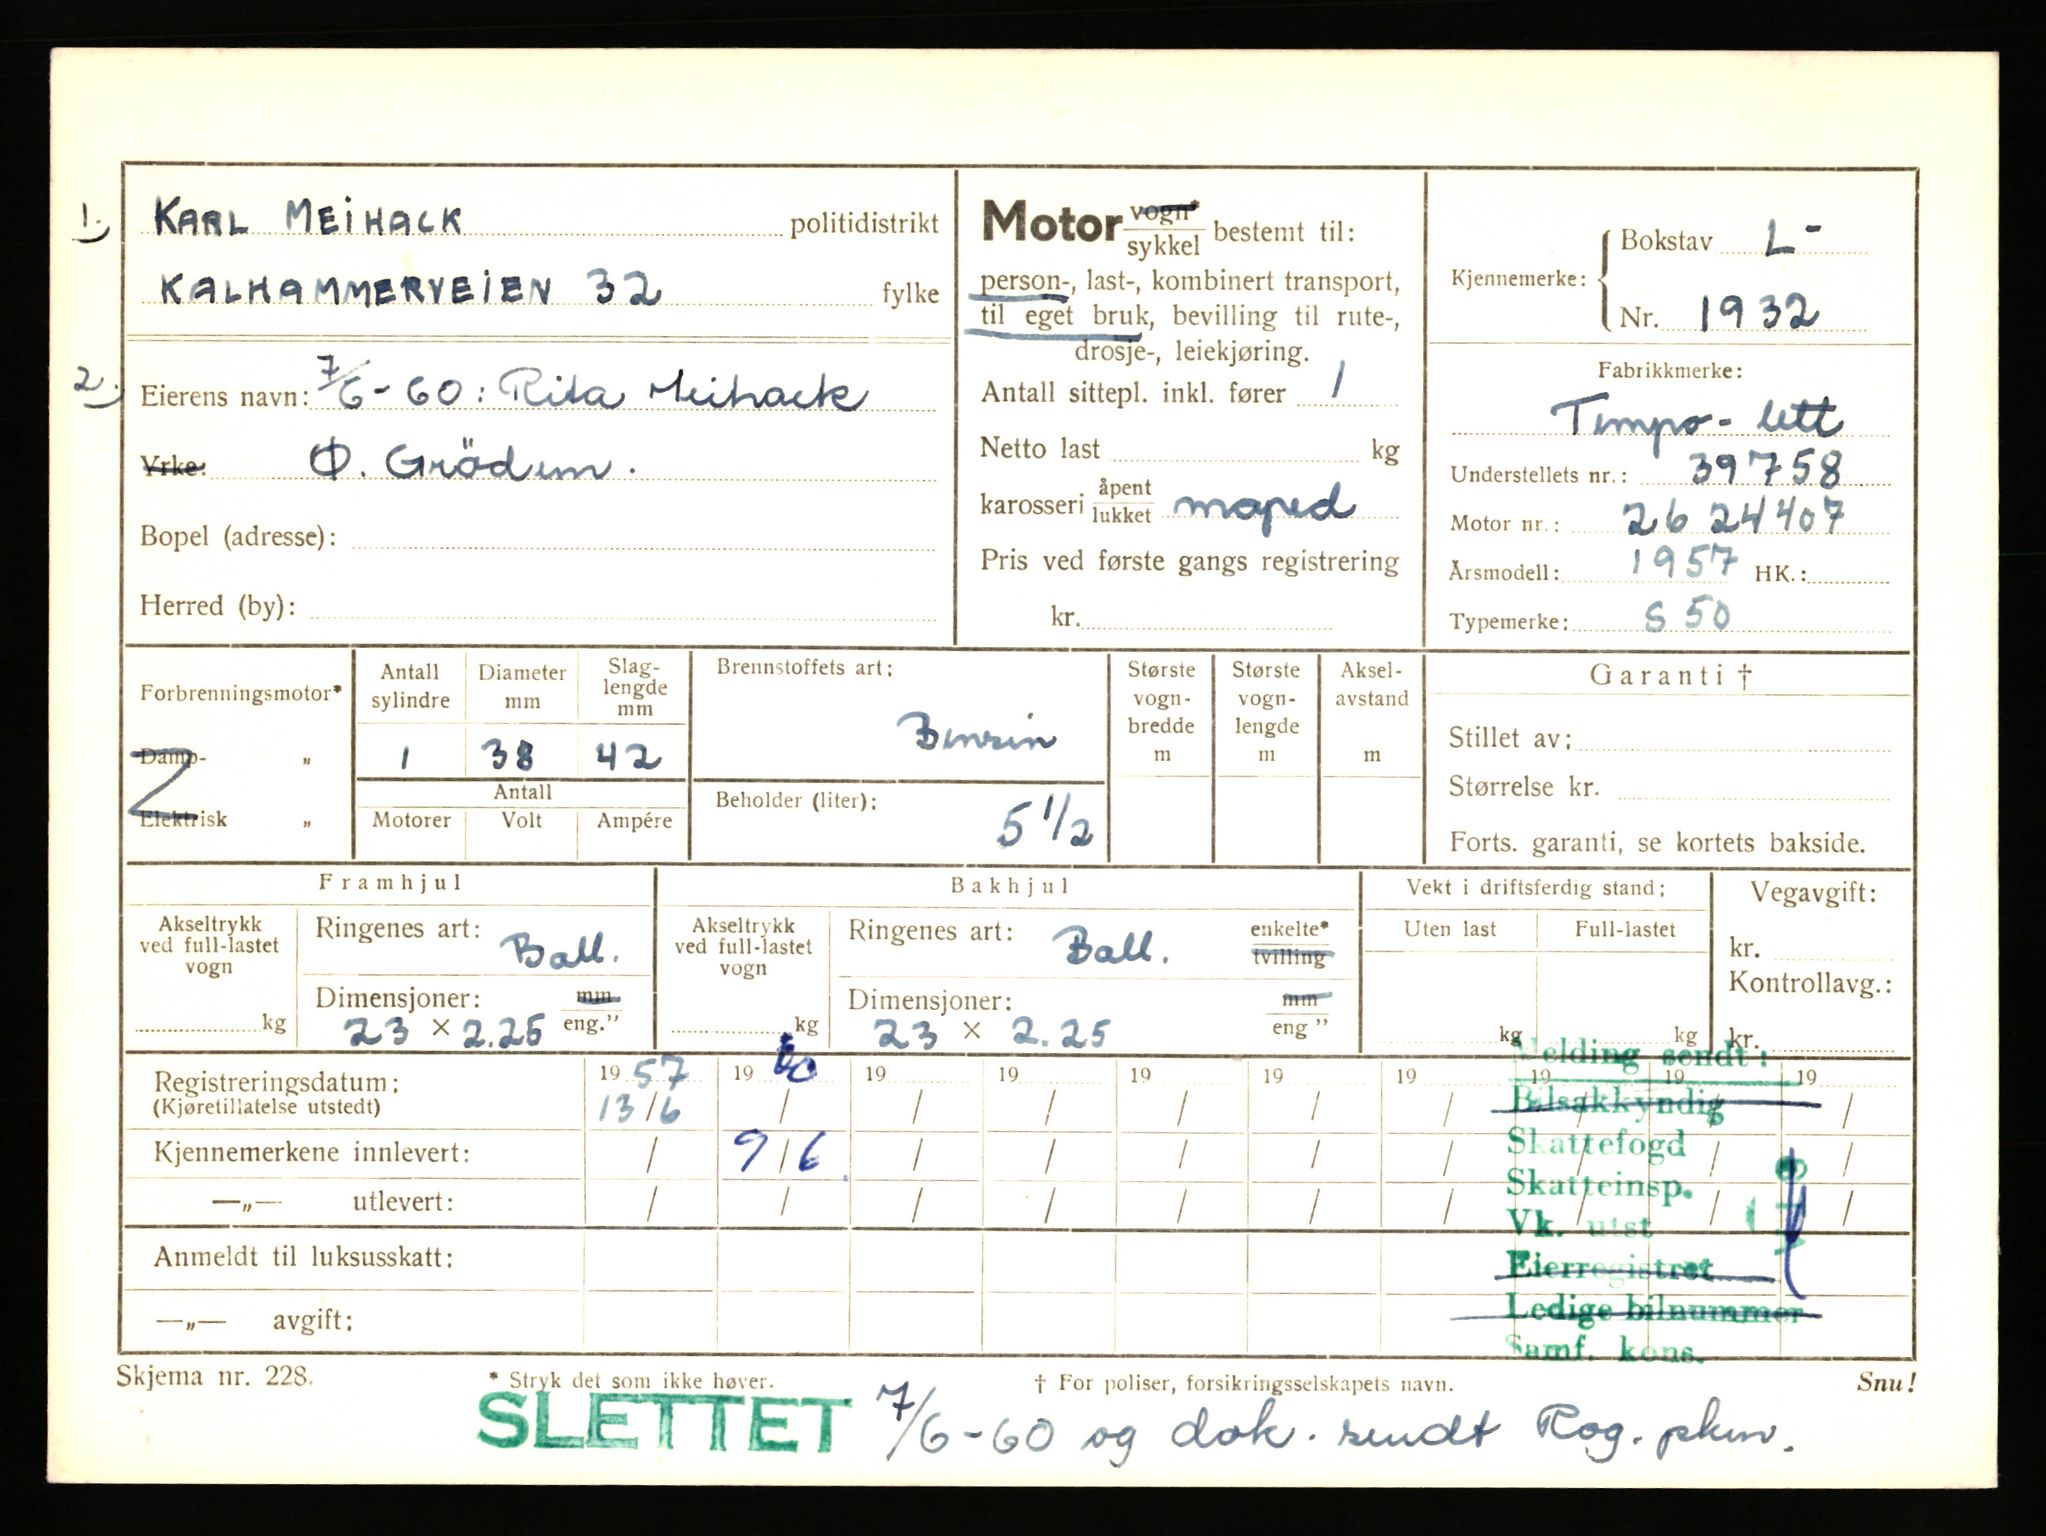 1. KARL MEIHACK politidistrikt
KALHAMMERVEIEN 32 fylke
2. Eierens navn: 7/6-60: Rita Meihack
Yrke: Ø. Grödem.
Bopel (adresse):
Herred (by):
Motor vogn* sykkel bestemt til:
person-, last-, kombinert transport,
til eget bruk, bevilling til rute-,
drosje-, leiekjøring.
Antall sittepl. inkl. fører 1
Netto last kg
karosseri åpent lukket moped
Pris ved første gangs registrering
kr.
Kjennemerke: Bokstav L-
Nr. 1932
Fabrikkmerke:
Tempo-lett
Understellets nr.: 39758
Motor nr.: 2624407
Årsmodell: 1957 HK.:
Typemerke: S 50
Forbrenningsmotor*
Damp- „
Elektrisk „
Antall sylindre
Diameter mm
Slag-lengde mm
1 38 42
Antall
Motorer Volt Ampére
Brennstoffets art:
Benzin
Beholder (liter):
5 1/2
Største vogn-bredde m
Største vogn-lengde m
Aksel-avstand m
Garanti †
Stillet av:
Størrelse kr.
Forts. garanti, se kortets bakside.
Framhjul
Akseltrykk ved full-lastet vogn
kg
Ringenes art: Ball.
Dimensjoner: mm
23 × 2.25 eng."
Bakhjul
Akseltrykk ved full-lastet vogn
kg
Ringenes art: Ball. enkelte* tvilling
Dimensjoner: mm
23 × 2.25 eng "
Vekt i driftsferdig stand:
Uten last Full-lastet
kg kg
Vegavgift:
kr.
Kontrollavg.:
kr.
Registreringsdatum: 19 57 19 60 19 19 19 19 19 19 19 19
(Kjøretillatelse utstedt) 13/6 / / / / / / / / /
Kjennemerkene innlevert: / 9/6 / / / / / / / /
—„— utlevert: / / / / / / / / / /
Anmeldt til luksusskatt:
—„— avgift:
Melding sendt:
Bilsakkyndig
Skattefogd
Skatteinsp.
Vk. utst
Eierregistret
Ledige bilnummer
Samf. kons.
Skjema nr. 228.
* Stryk det som ikke høver.
† For poliser, forsikringsselskapets navn.
Snu!
SLETTET 7/6-60 og dok. sendt Rog. pkm.